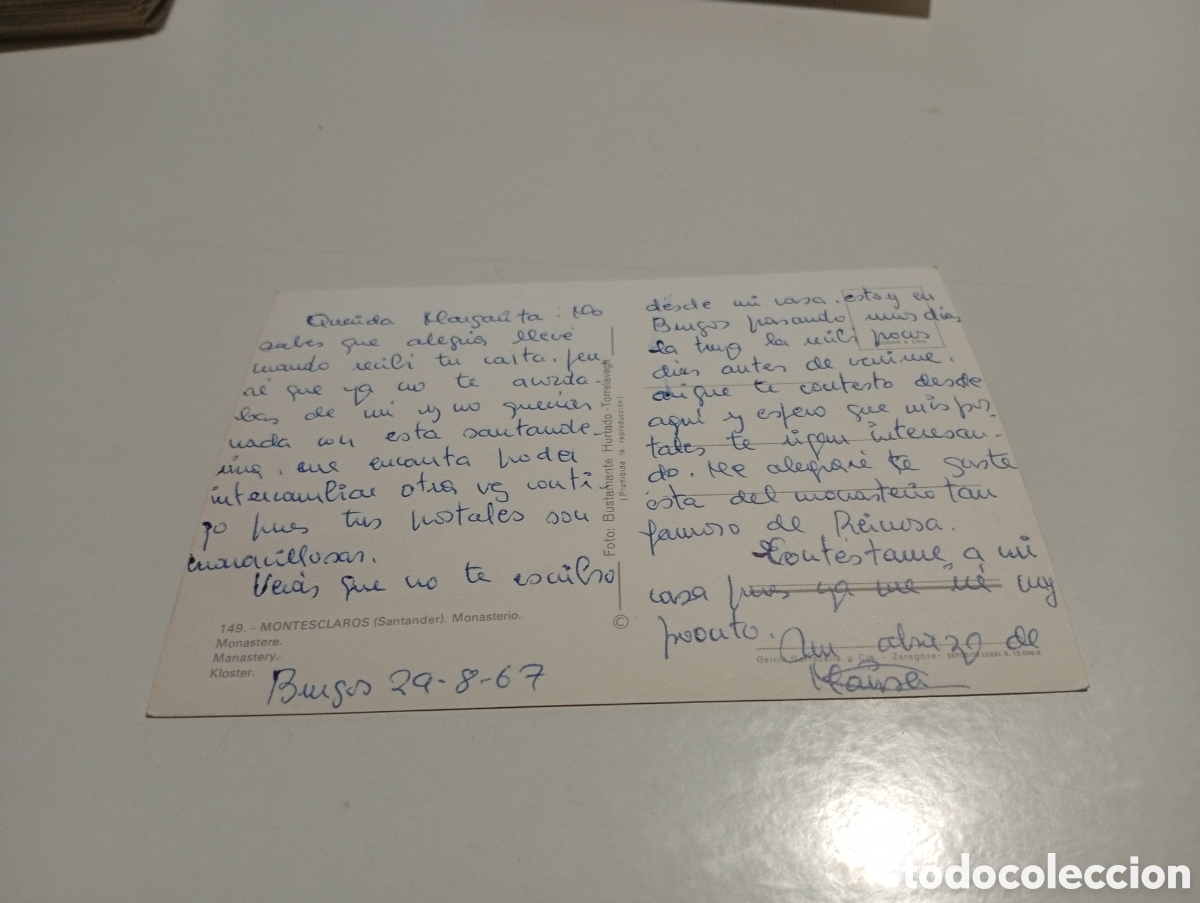 Querida Margarita: No
sabes que alegria llevé
cuando recibí tu carta. pen
sé que ya no te acorda-
bas de mi y no querías
nada con esta santande-
rina. me encanta poder
intercambiar otra vez conti-
go pues tus postales son
maravillosas.
Verás que no te escribo
149. - MONTESCLAROS (Santander). Monasterio.
Monastere.
Manastery.
Kloster.
Burgos 29-8-67
Foto: Bustamante Hurtado - Torrelavega
(Prohibida la reproducción)
©
desde mi casa. estoy en
Burgos pasando unos días
la tuya la recibí pocos
días antes de venirme.
asi que te contesto desde
aquí y espero que mis pos-
tales te sigan interesan-
do. Me alegraré te guste
esta del monasterio tan
famoso de Reinosa.
Contéstame a mi
casa pues ya me iré muy
pronto.
Un abrazo de
García Garrabella y Cía. - Zaragoza - DEPÓSITO LEGAL B.
todocoleccion